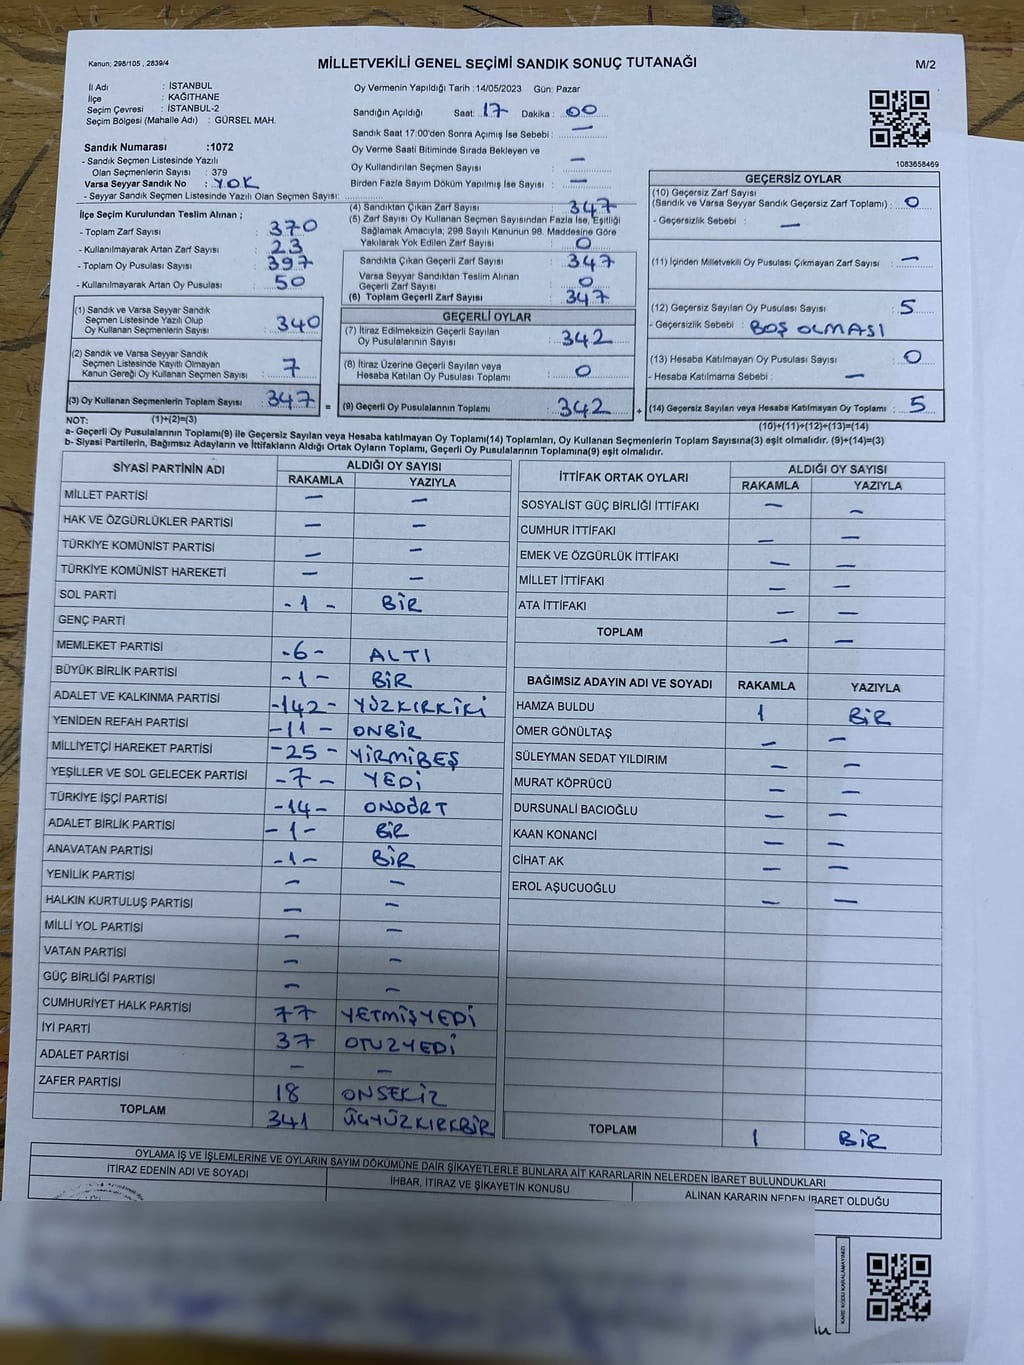 Kanun; 298/105 , 2839/4
MİLLETVEKİLİ GENEL SEÇİMİ SANDIK SONUÇ TUTANAĞI
M/2
İl Adı : İSTANBUL
İlçe : KAĞITHANE
Seçim Çevresi : İSTANBUL-2
Seçim Bölgesi (Mahalle Adı) : GÜRSEL MAH.
Sandık Numarası :1072
- Sandık Seçmen Listesinde Yazılı
Olan Seçmenlerin Sayısı : 379
Varsa Seyyar Sandık No : YOK
- Seyyar Sandık Seçmen Listesinde Yazılı Olan Seçmen Sayısı:
İlçe Seçim Kurulundan Teslim Alınan ;
- Toplam Zarf Sayısı : 370
- Kullanılmayarak Artan Zarf Sayısı : 23
- Toplam Oy Pusulası Sayısı : 397
- Kullanılmayarak Artan Oy Pusulası : 50
(1) Sandık ve Varsa Seyyar Sandık
Seçmen Listesinde Yazılı Olup
Oy Kullanan Seçmenlerin Sayısı : 340
(2) Sandık ve Varsa Seyyar Sandık
Seçmen Listesinde Kayıtlı Olmayan
Kanun Gereği Oy Kullanan Seçmen Sayısı : 7
(3) Oy Kullanan Seçmenlerin Toplam Sayısı : 347
(1)+(2)=(3)
Oy Vermenin Yapıldığı Tarih : 14/05/2023 Gün: Pazar
Sandığın Açıldığı Saat: 17 Dakika : 00
Sandık Saat 17:00'den Sonra Açımış İse Sebebi : —
Oy Verme Saati Bitiminde Sırada Bekleyen ve
Oy Kullandırılan Seçmen Sayısı : —
Birden Fazla Sayım Döküm Yapılmış İse Sayısı : —
(4) Sandıktan Çıkan Zarf Sayısı : 347
(5) Zarf Sayısı Oy Kullanan Seçmen Sayısından Fazla İse, Eşitliği
Sağlamak Amacıyla; 298 Sayılı Kanunun 98. Maddesine Göre
Yakılarak Yok Edilen Zarf Sayısı : 0
Sandıkta Çıkan Geçerli Zarf Sayısı : 347
Varsa Seyyar Sandıktan Teslim Alınan
Geçerli Zarf Sayısı : 0
(6) Toplam Geçerli Zarf Sayısı : 347
GEÇERLİ OYLAR
(7) İtiraz Edilmeksizin Geçerli Sayılan
Oy Pusulalarının Sayısı : 342
(8) İtiraz Üzerine Geçerli Sayılan veya
Hesaba Katılan Oy Pusulası Toplamı : 0
= (9) Geçerli Oy Pusulalarının Toplamı : 342 +
1083658469
GEÇERSİZ OYLAR
(10) Geçersiz Zarf Sayısı
(Sandık ve Varsa Seyyar Sandık Geçersiz Zarf Toplamı) : 0
- Geçersizlik Sebebi : —
(11) İçinden Milletvekili Oy Pusulası Çıkmayan Zarf Sayısı : —
(12) Geçersiz Sayılan Oy Pusulası Sayısı : 5
- Geçersizlik Sebebi : BOŞ OLMASI
(13) Hesaba Katılmayan Oy Pusulası Sayısı : 0
- Hesaba Katılmama Sebebi : —
(14) Geçersiz Sayılan veya Hesaba Katılmayan Oy Toplamı : 5
(10)+(11)+(12)+(13)=(14)
NOT:
a- Geçerli Oy Pusulalarının Toplamı(9) ile Geçersiz Sayılan veya Hesaba katılmayan Oy Toplamı(14) Toplamları, Oy Kullanan Seçmenlerin Toplam Sayısına(3) eşit olmalıdır. (9)+(14)=(3)
b- Siyasi Partilerin, Bağımsız Adayların ve İttifakların Aldığı Ortak Oyların Toplamı, Geçerli Oy Pusulalarının Toplamına(9) eşit olmalıdır.
SİYASİ PARTİNİN ADI
ALDIĞI OY SAYISI
RAKAMLA YAZIYLA
MİLLET PARTİSİ — —
HAK VE ÖZGÜRLÜKLER PARTİSİ — —
TÜRKİYE KOMÜNİST PARTİSİ — —
TÜRKİYE KOMÜNİST HAREKETİ — —
SOL PARTİ - 1 - BİR
GENÇ PARTİ
MEMLEKET PARTİSİ -6- ALTI
BÜYÜK BİRLİK PARTİSİ -1- BİR
ADALET VE KALKINMA PARTİSİ -142- YÜZKIRKİKİ
YENİDEN REFAH PARTİSİ -11- ONBİR
MİLLİYETÇİ HAREKET PARTİSİ -25- YİRMİBEŞ
YEŞİLLER VE SOL GELECEK PARTİSİ -7- YEDİ
TÜRKİYE İŞÇİ PARTİSİ -14- ONDÖRT
ADALET BİRLİK PARTİSİ -1- BİR
ANAVATAN PARTİSİ -1- BİR
YENİLİK PARTİSİ — —
HALKIN KURTULUŞ PARTİSİ — —
MİLLİ YOL PARTİSİ — —
VATAN PARTİSİ — —
GÜÇ BİRLİĞİ PARTİSİ — —
CUMHURİYET HALK PARTİSİ 77 YETMİŞYEDİ
İYİ PARTİ 37 OTUZYEDİ
ADALET PARTİSİ — —
ZAFER PARTİSİ 18 ONSEKİZ
TOPLAM 341 ÜÇYÜZKIRKBİR
İTTİFAK ORTAK OYLARI
ALDIĞI OY SAYISI
RAKAMLA YAZIYLA
SOSYALİST GÜÇ BİRLİĞİ İTTİFAKI — —
CUMHUR İTTİFAKI — —
EMEK VE ÖZGÜRLÜK İTTİFAKI — —
MİLLET İTTİFAKI — —
ATA İTTİFAKI — —
TOPLAM — —
BAĞIMSIZ ADAYIN ADI VE SOYADI RAKAMLA YAZIYLA
HAMZA BULDU 1 BİR
ÖMER GÖNÜLTAŞ — —
SÜLEYMAN SEDAT YILDIRIM — —
MURAT KÖPRÜCÜ — —
DURSUNALİ BACIOĞLU — —
KAAN KONANCİ — —
CİHAT AK — —
EROL AŞUCUOĞLU — —
TOPLAM 1 BİR
OYLAMA İŞ VE İŞLEMLERİNE VE OYLARIN SAYIM DÖKÜMÜNE DAİR ŞİKAYETLERLE BUNLARA AİT KARARLARIN NELERDEN İBARET BULUNDUKLARI
İTİRAZ EDENİN ADI VE SOYADI
İHBAR, İTİRAZ VE ŞİKAYETİN KONUSU
ALINAN KARARIN NEDEN İBARET OLDUĞU
KARE KODU KARALAMAYINIZ!